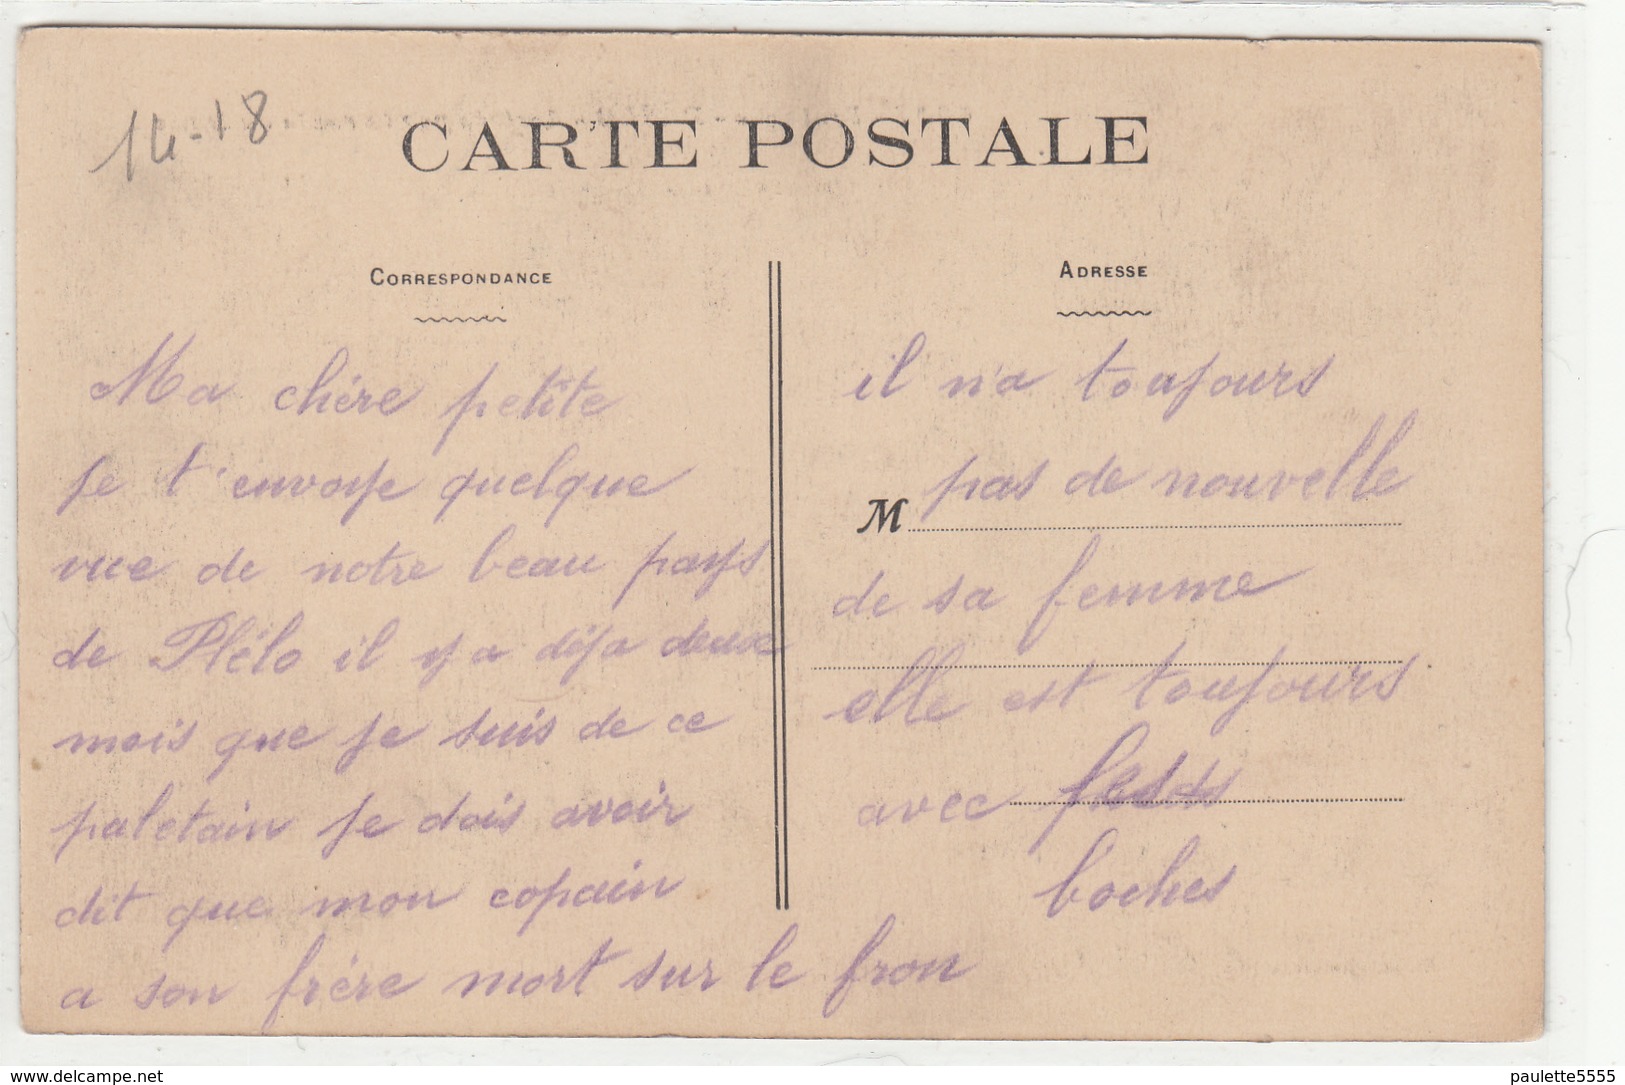 14-18
CARTE POSTALE
CORRESPONDANCE
Ma chére petite
je t'envoye quelque
vue de notre beau pays
de Plélo il y a déja deux
mois que je suis de ce
paletain je dois avoir
dit que mon copain
a son frére mort sur le fron
ADRESSE
il n'a toujours
M pas de nouvelle
de sa femme
elle est toujours
avec
boches
www.delcampe.net
paulette5555